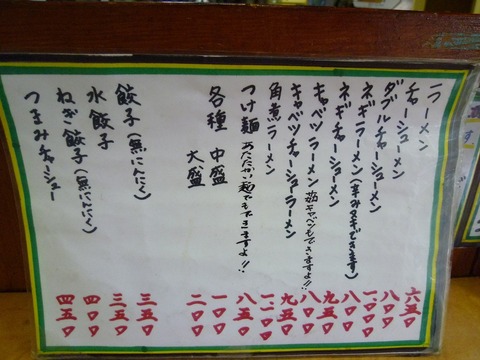 ラーメン 六五〇
チャーシューメン 八〇〇
ダブルチャーシューメン 一,〇〇〇
ネギラーメン(辛みヌキできます) 八〇〇
ネギチャーシューメン 九五〇
キャベツラーメン 茹キャベツもできますよ!! 八〇〇
キャベツチャーシューラーメン 九五〇
角煮ラーメン 一,一〇〇
つけ麺 あたたかい麺でもできますよ!! 八五〇
各種 中盛 一〇〇
大盛 二〇〇
餃子(無にんにく) 三五〇
水餃子 三五〇
ねぎ餃子(無にんにく) 四〇〇
つまみチャーシュー 四五〇